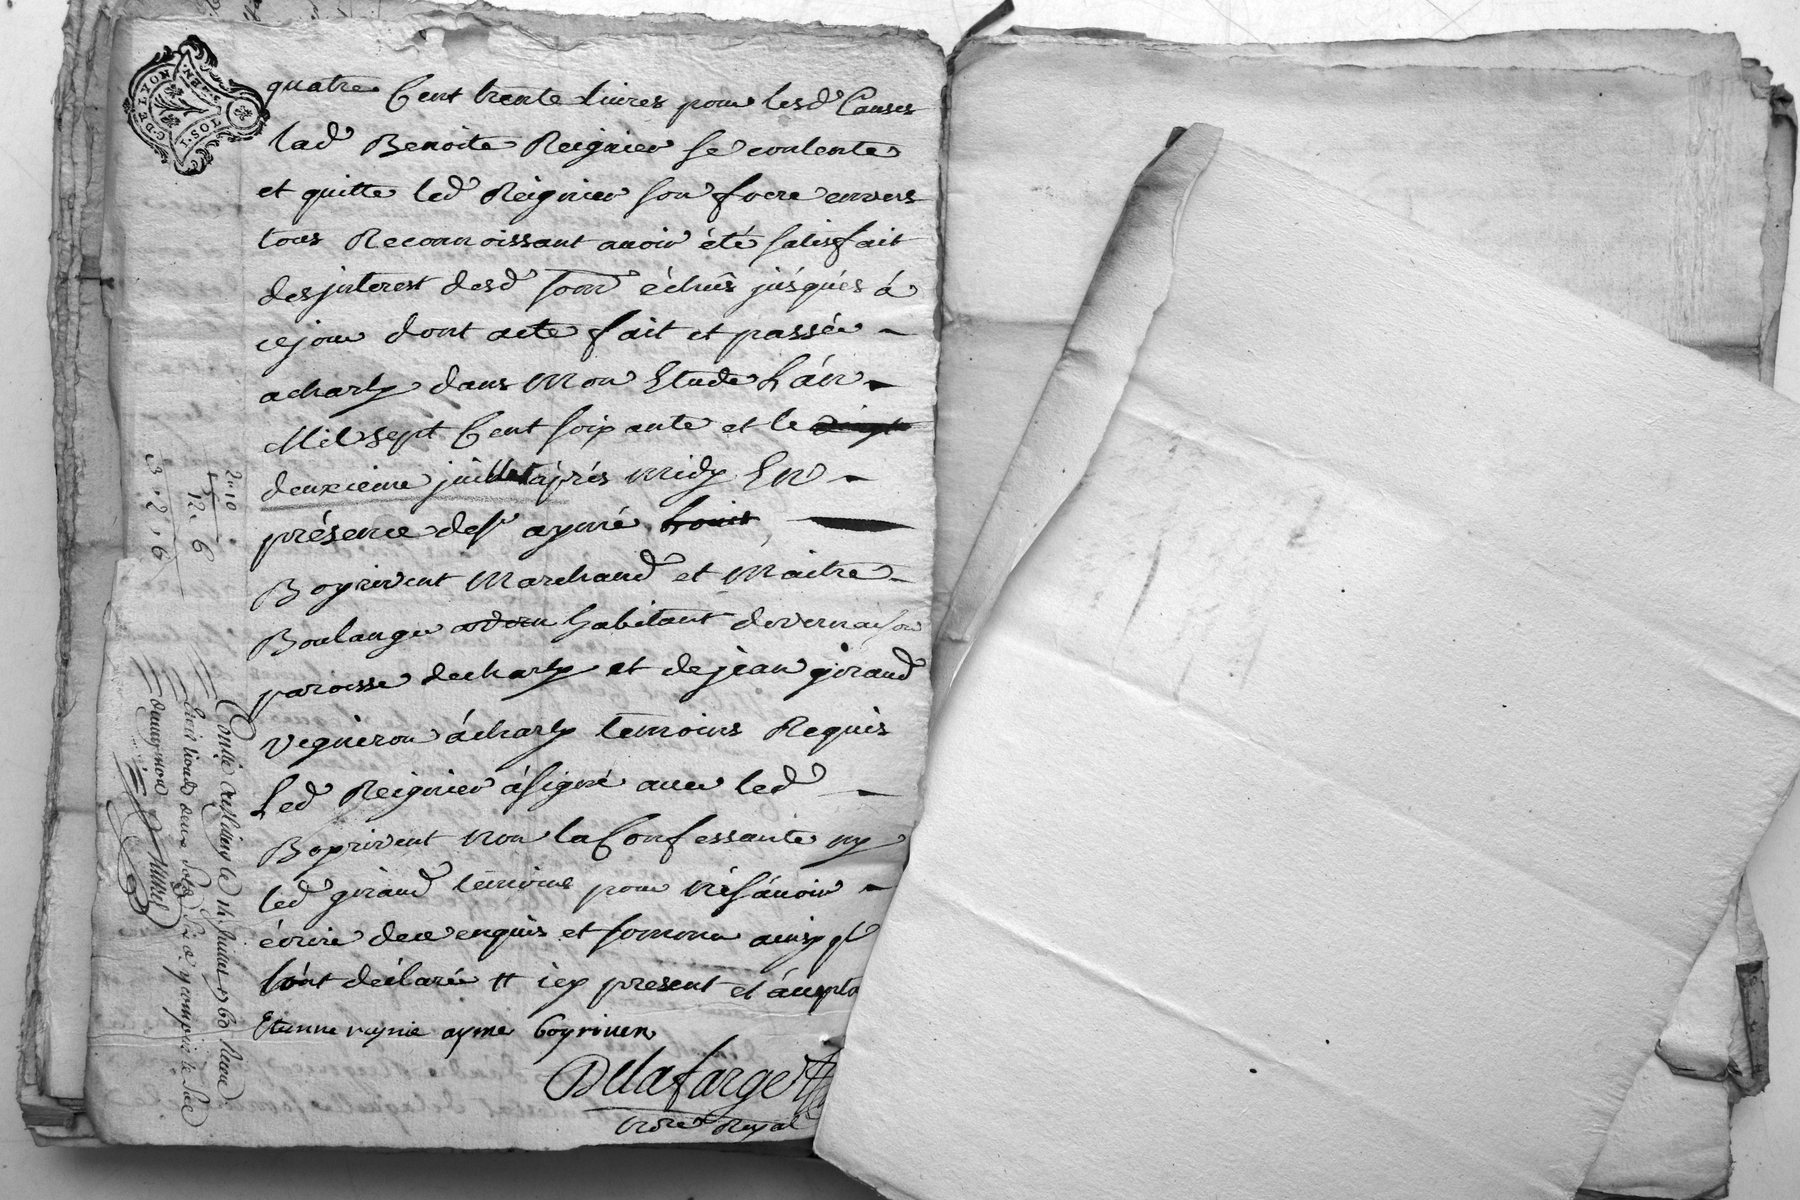 G. DE LYON
1. SOL
quatre Cent trente livres pour lesd Causes
lad Benoite Reignier se contente
et quitte led Reignier son frere envers
tous Reconnoissant avoir été satisfait
des jnterest desd som échûs júsqués á
ce jour dont acte fait et passée
a charly dans Mon Etude L'án
Mil sept Cent soixante et le vingt
deuxieme juillet áprés Midy EN
présence de sr aymé Louis
Boyrivent Marchand et Maitre
Boulanger habitant de vernaison
paroisse de charly et de jean giraud
vigneron á charly temoins Requis
Led Reignier á signé avec led
Boyrivent Non la Confessante ny
led giraud temoins pour Né sávoir
écrire de ce enquis et somme ainsy qu
lónt déclaré tt icy present et ácepta
Etienne raynie ayme boyriven
Delafarge
Nore Royal
2 " 10
12. 6
3. 2. 6
le 14 Juillet 1760 Recu
trois livres deux sols six d. y compris le